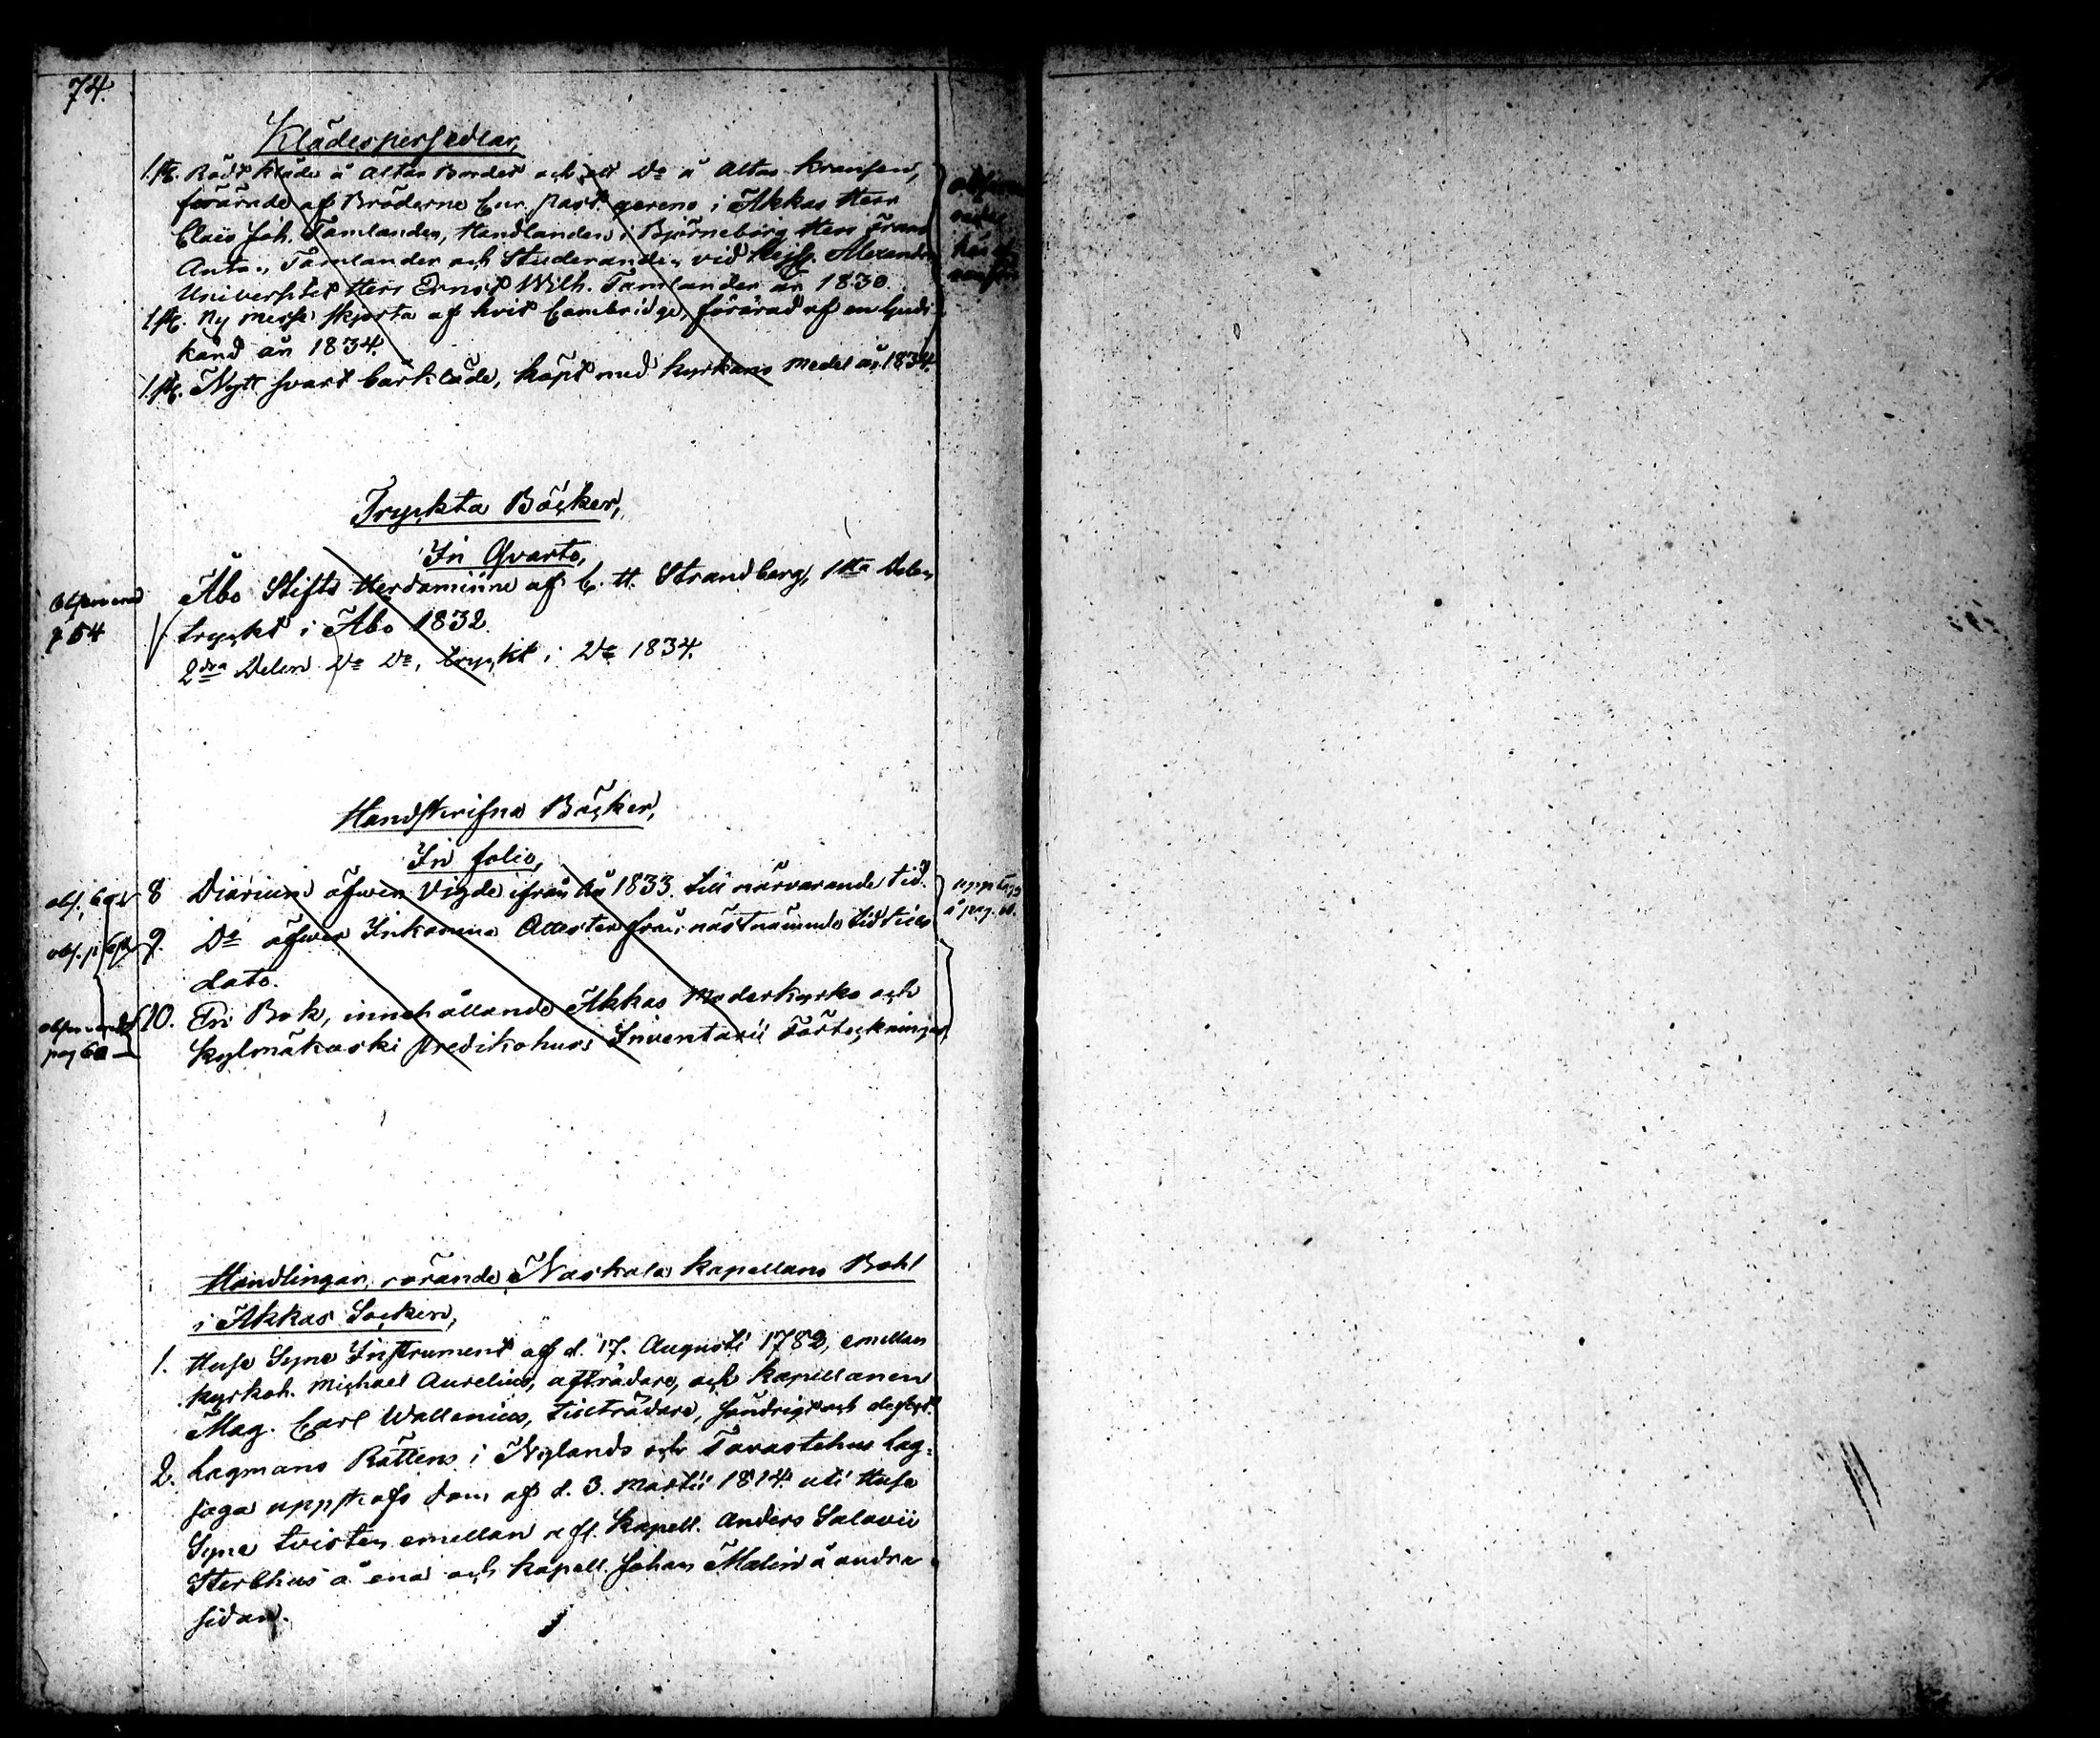 74.
Klädespersedlar,
1. st. Rödt kläde å Altar Bordet och ett Do å Altar kransen,
förärade af Bröderne Cur. past. gerens i Akkas Herr
Claës Joh. Tamlander, Handlanden i Björneborg Herr Frans
Anton Tamlander och Studeranden vid Kejs. Alexanders
Universitet Herr Ernst Wilh. Tamlander år 1830.
1 st. Ny Messe skjorta af hvit Cambridge, förärad af en
känd år 1834.
1. st. Nytt svart barkläde, köpt med kyrkans medel år 1834.
Tryckta Böcker,
In Qvarto,
Åbo Stifts Herdaminne af C. H. Strandberg, 1sta Delen
tryckt i Åbo 1832.
2dra Delen Do Do, tryckt i Do 1834.
p 54
Handskrifna Böcker,
In folio,
8 Diarium öfwer Vigde ifrån år 1833. till närvarande tid.
9. Do öfwer Inkomne Attester från nästnämnde tid till
dato.
10. En Bok, innehållande Akkas Moderkyrko och
Kylmäkoski predikohus Inventarii Förteckningar
pag 60
upptages
å pag.
Handlingar, rörande Naskala kapellans Bohl
i Akkas Socken,
1. Huse Syne Instrument af d. 17. Augusti 1782, emellan
kyrkoh. Michael Aurelius, afträdare, och kapellanen
Mag. Carl Wallenius, tillträdare,
2. Lagmans Rättens i Nylands och Tavastehus Lag-
saga uppskofs dom af d. 3. Martii 1814 uti Huse
Syne tvisten emellan afl. Kapell. Anders Salovii
Sterbhus å ena och kapell. Johan Malin å andra
sidan.